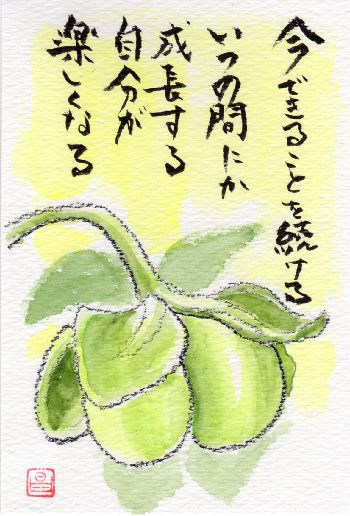 今できることを続ける
いつの間にか
成長する
自分が
楽しくなる